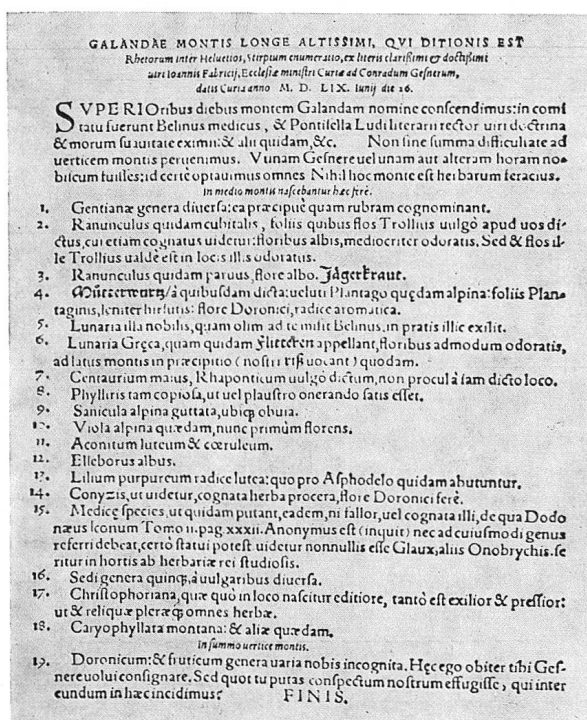 GALANDAE MONTIS LONGE ALTISSIMI, QVI DITIONIS EST
Rhetorum inter Heluetios, Stirpium enumeratio, ex literis clarissimi & doctissimi
uiri Ioannis Fabricij, Ecclesiæ ministri Curiæ ad Conradum Gesnerum,
datis Curia anno M. D. LIX. Iunij die 26.
SVPERIOribus diebus montem Galandam nomine conscendimus: in comi
tatu fuerunt Belinus medicus, & Pontisella Ludi literarii rector uiri doctrina
& morum suauitate eximii: & alii quidam, &c. Non sine summa difficultate ad
uerticem montis peruenimus. Vnam Gesnere uel unam aut alteram horam no=
biscum fuisses: id certè optauimus omnes Nihil hoc monte est herbarum feracius.
In medio montis nascebantur hæc ferè.
1. Gentianæ genera diuersa: ea præcipuè quam rubram cognominant.
2. Ranunculus quidam cubitalis, foliis quibus flos Trollius uulgò apud uos di=
ctus, cui etiam cognatus uidetur: floribus albis, mediocriter odoratis. Sed & flos il=
le Trollius ualdè est in locis illis odoratus.
3. Ranunculus quidam paruus, flore albo. Jägerkraut.
4. Mütterwurtz/ à quibusdam dicta: ueluti Plantago quędam alpina: foliis Plan=
taginis, leniter hirsutis: flore Doronici, radice aromatica.
5. Lunaria illa nobilis, quam olim ad te misit Belinus, in pratis illic exilit.
6. Lunaria Gręca, quam quidam appellant, floribus admodum odoratis,
ad latus montis in præcipitio ( nostri uocant ) quodam.
7. Centaurium maius, Rhaponticum uulgò dictum, non procul à iam dicto loco.
8. Phyllitis tam copiosa, ut uel plaustro onerando satis esset.
9. Sanicula alpina guttata, ubiq; obuia.
10. Viola alpina quædam, nunc primùm florens.
11. Aconitum luteum & cœruleum.
12. Elleborus albus.
13. Lilium purpureum radice lutea: quo pro Asphodelo quidam abutuntur.
14. Conyzis, ut uidetur, cognata herba procera, flore Doronici ferè.
15. Medicę species, ut quidam putant, eadem, ni fallor, uel cognata illi, de qua Dodo
næus Iconum Tomo 11. pag xxxii. Anonymus est (inquit) nec ad cuiusmodi genus
referri debeat, certò statui potest uidetur nonnullis esse Glaux, aliis Onobrychis. se
ritur in hortis ab herbariæ rei studiosis.
16. Sedi genera quinq;, à uulgaribus diuersa.
17. Christophoriana, quæ quò in loco nascitur editiore, tantò est exilior & pressior:
ut & reliquæ pleræq; omnes herbæ.
18. Caryophyllata montana: & aliæ quædam.
In summo uertice montis.
19. Doronicum: & fruticum genera uaria nobis incognita. Hęc ego obiter tibi Ges=
nere uolui consignare. Sed quot tu putas conspectum nostrum effugisse, qui inter
eundum in hæc incidimus? FINIS.